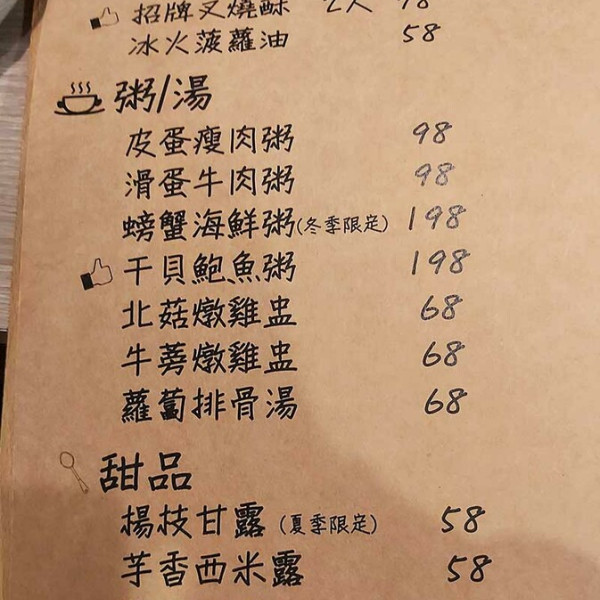 招牌叉燒酥 2入 98
冰火菠蘿油 58
粥/湯
皮蛋瘦肉粥 98
滑蛋牛肉粥 98
螃蟹海鮮粥(冬季限定) 198
干貝鮑魚粥 198
北菇燉雞盅 68
牛蒡燉雞盅 68
蘿蔔排骨湯 68
甜品
楊枝甘露(夏季限定) 58
芋香西米露 58